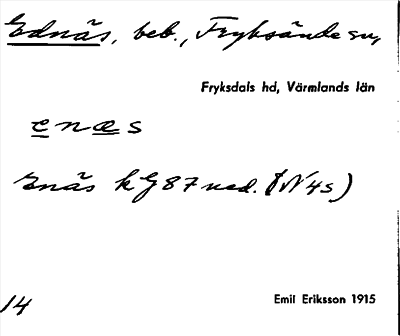 Ednäs, beb., Fryksände sn,
Fryksdals hd, Värmlands län
enæs
Enäs kG87ned. (N4s)
14
Emil Eriksson 1915